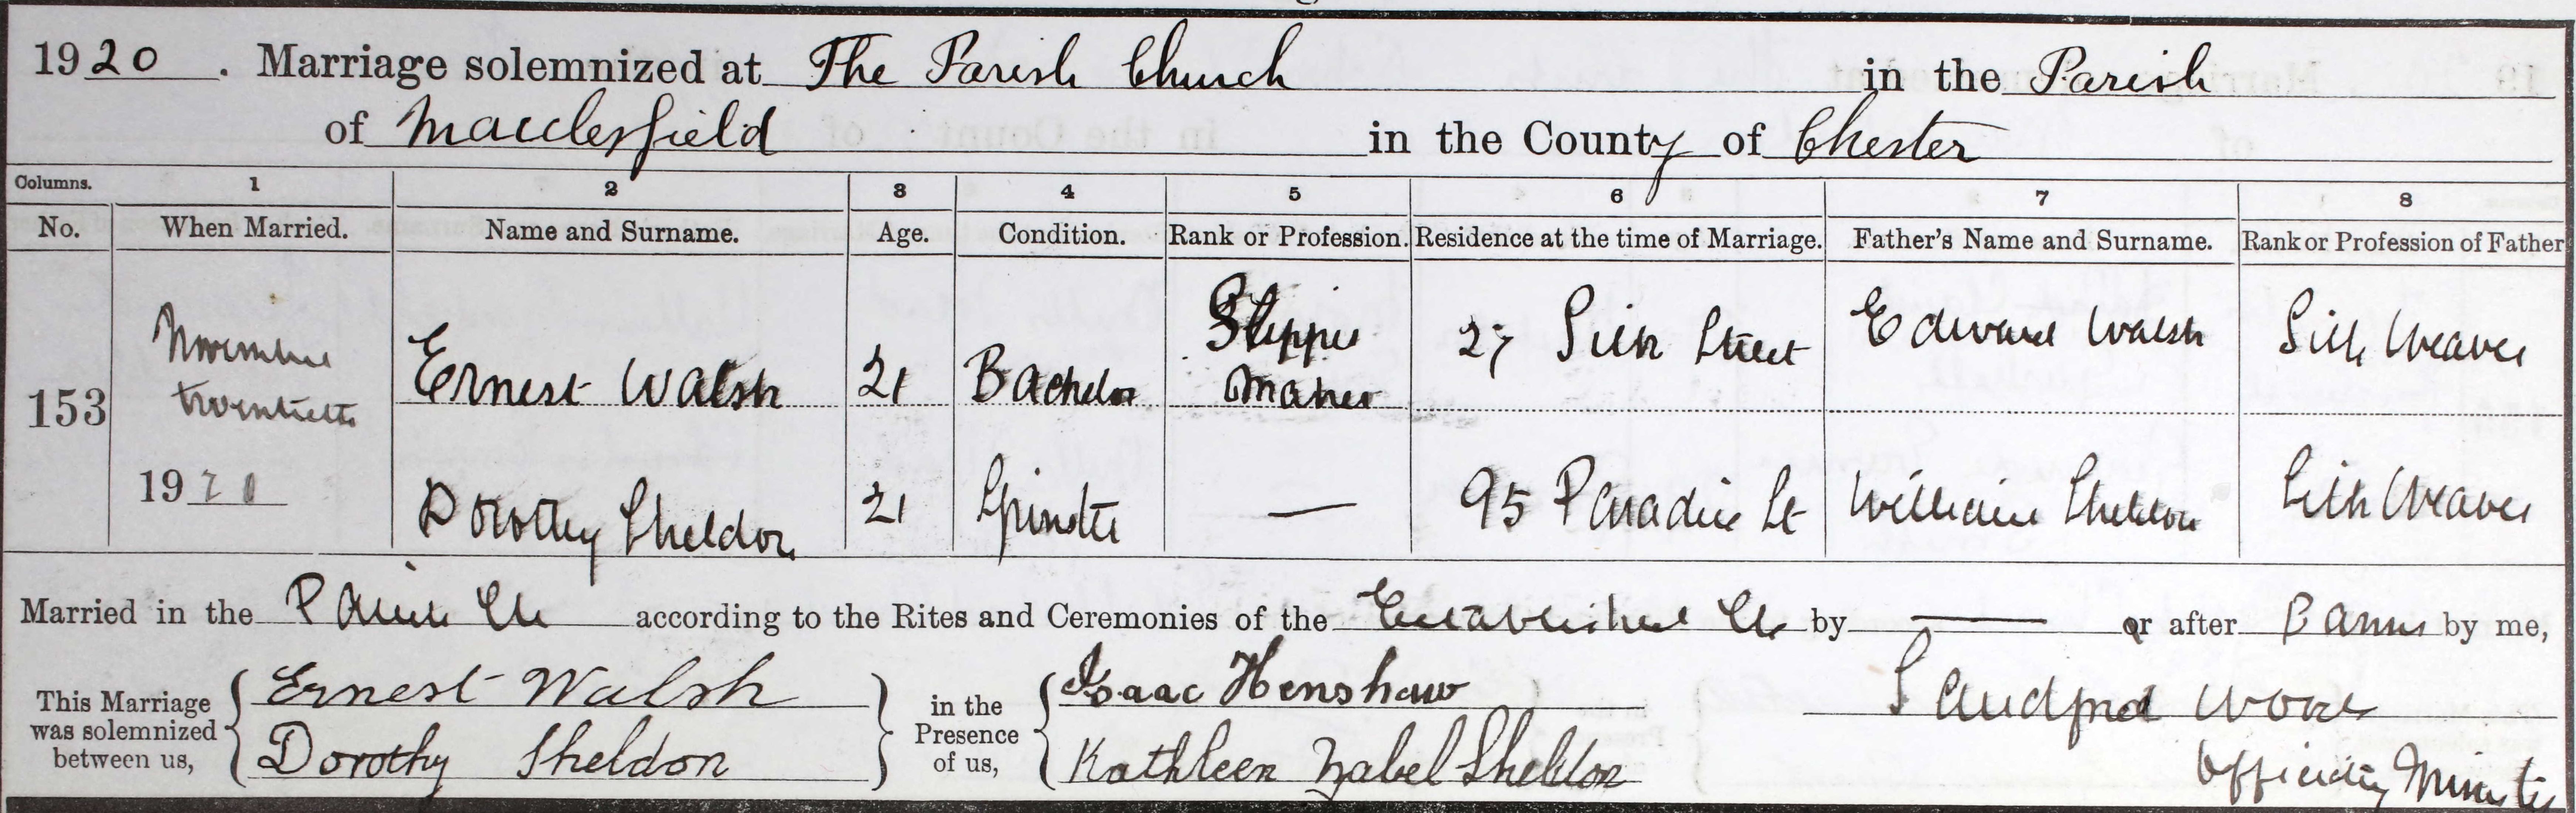 1920. Marriage solemnized at The Parish Church in the Parish
of Macclesfield in the County of Chester
Columns. 1 2 3 4 5 6 7 8
No. When Married. Name and Surname. Age. Condition. Rank or Profession. Residence at the time of Marriage. Father's Name and Surname. Rank or Profession of Father
153 November twentieth 1920 Ernest Walsh 21 Bachelor Slipper maker 27 Silk Street Edward Walsh Silk Weaver
Dorothy Sheldon 21 Spinster — 95 Paradise St William Sheldon Silk Weaver
Married in the Parish Ch according to the Rites and Ceremonies of the Established Ch by — or after Banns by me,
This Marriage was solemnized between us, Ernest Walsh Dorothy Sheldon in the Presence of us, Isaac Henshaw Kathleen Izabel Sheldon Sandford
Officiating Minister